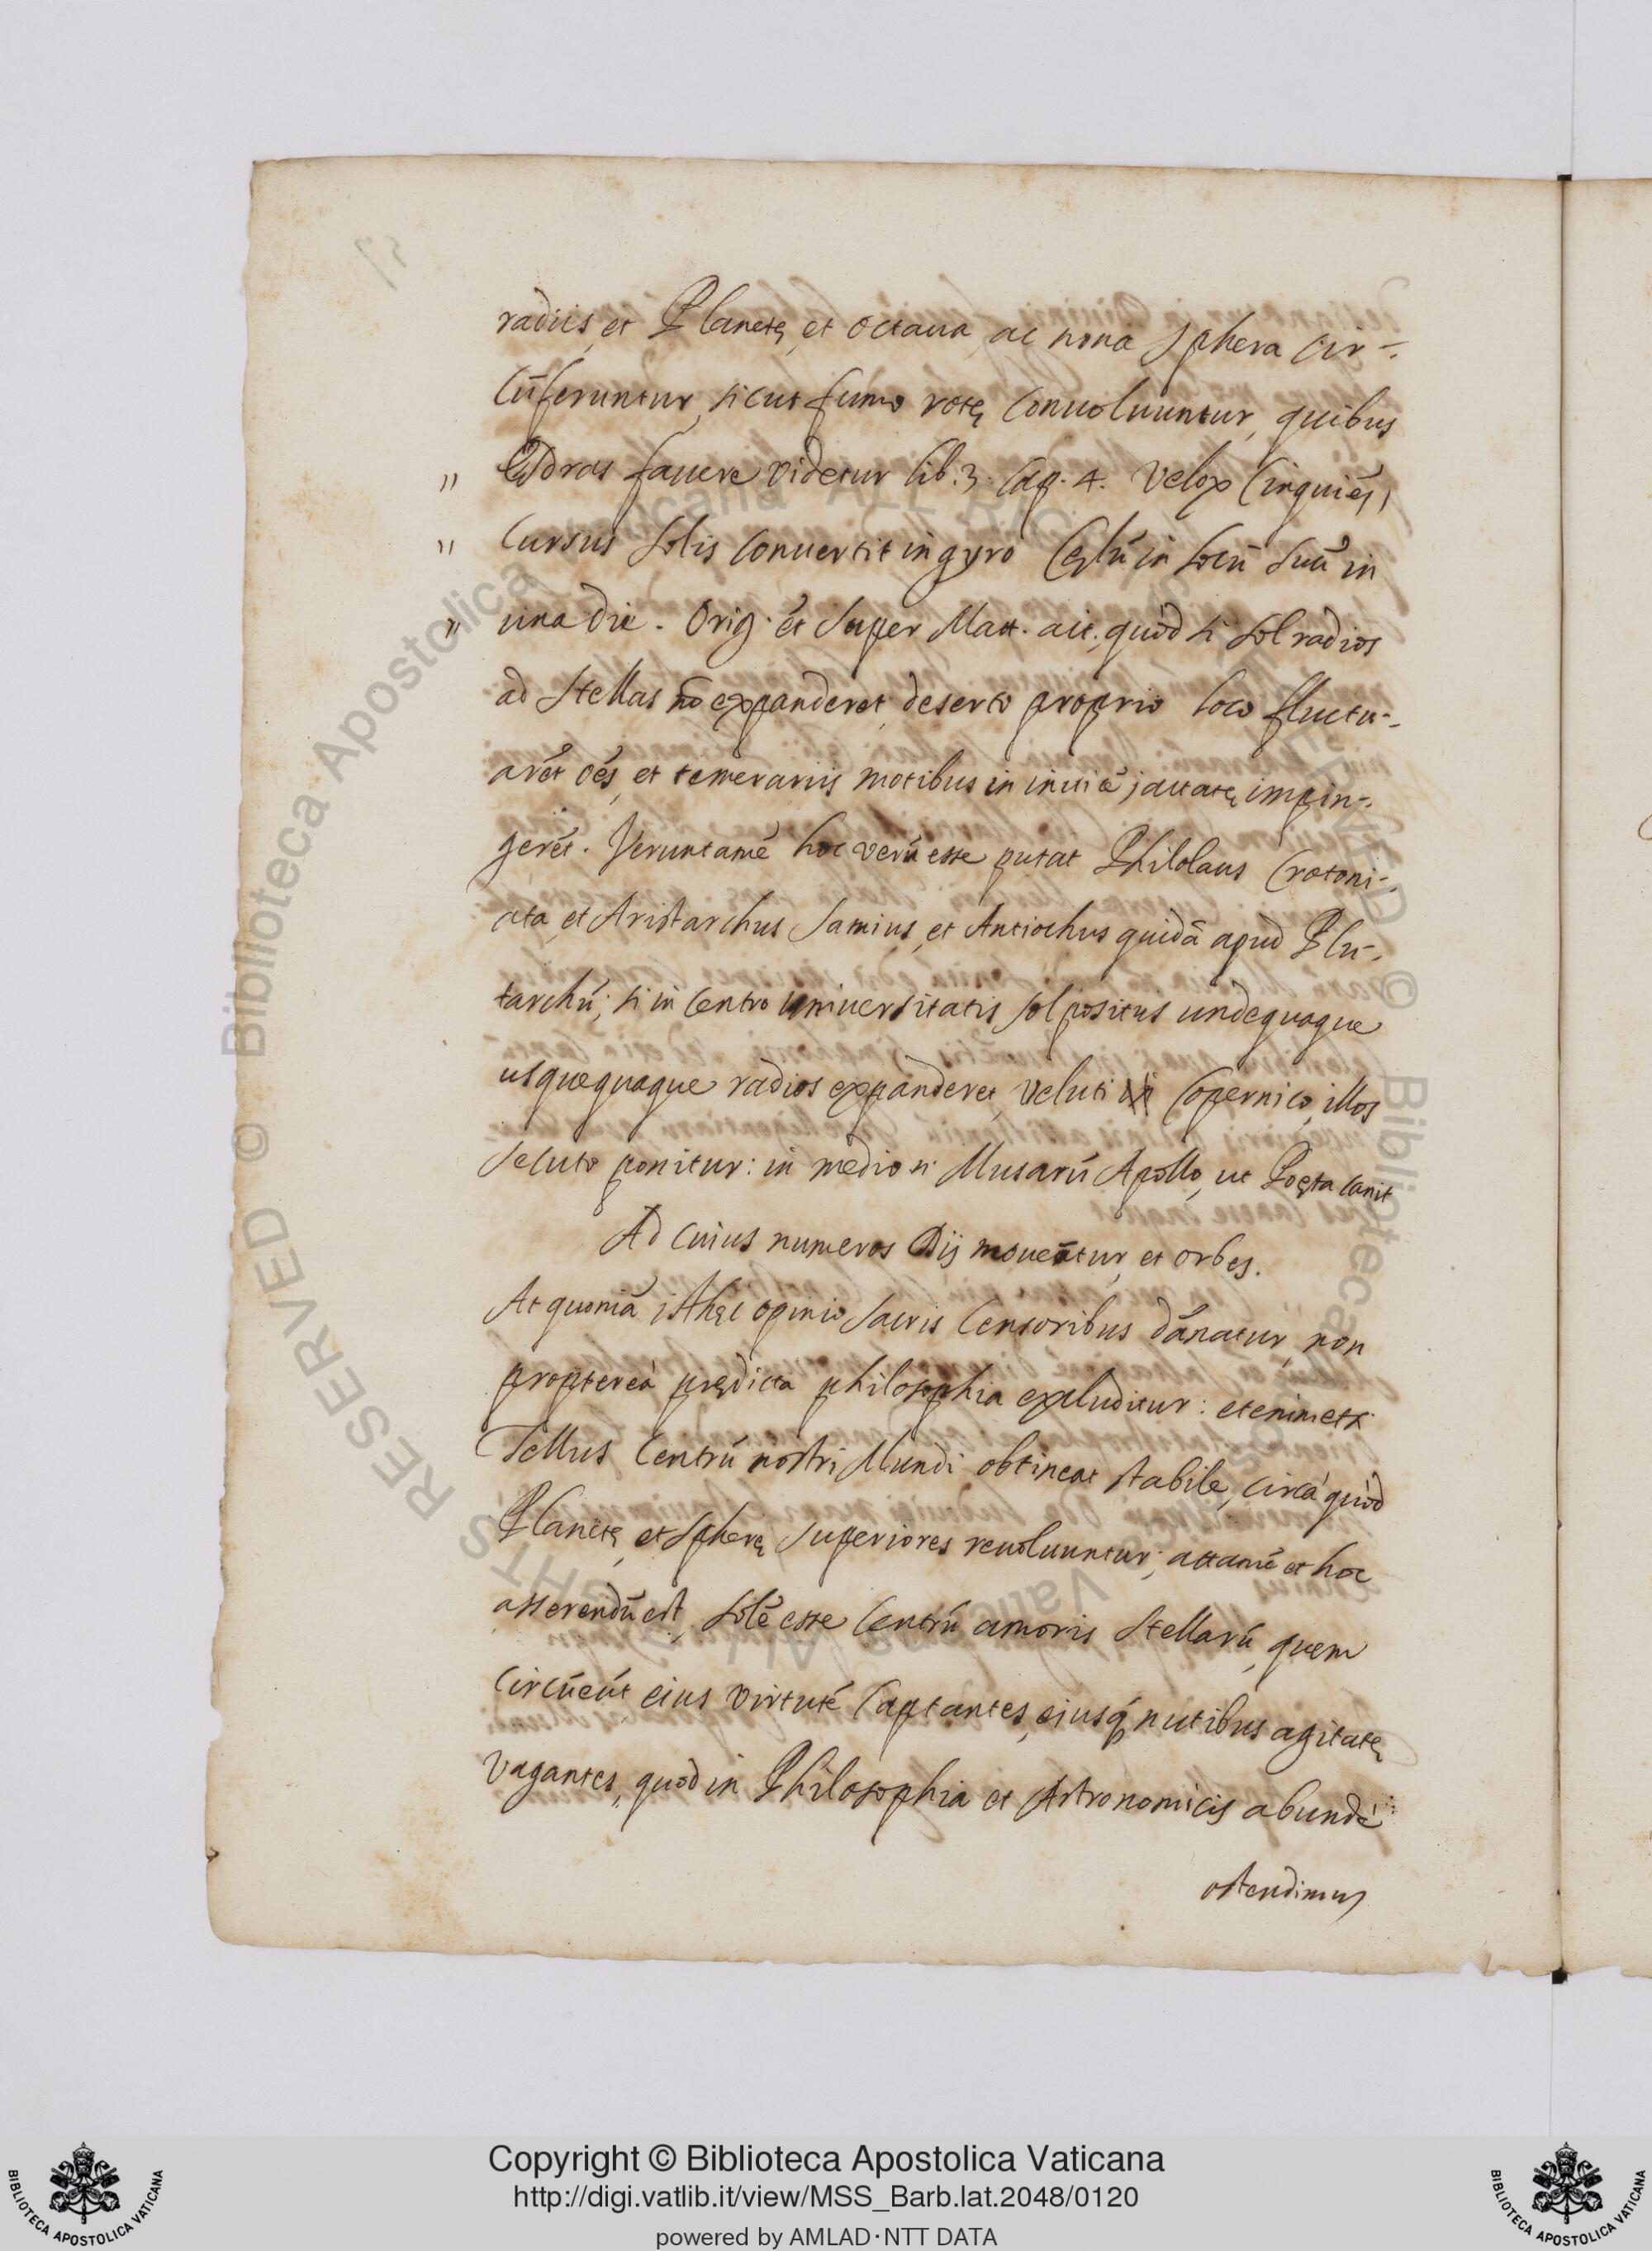 radiis, et Planetę, et octaua, ac nona Sphera cir-
cũferuntur, sicut fumo rotę conuoluuntur, quibus
" Esdras fauere videtur lib. 3. cap. 4. Velox (inquiẽs)
" cursus solis conuertit in gyro Cęlũ in locũ suũ in
" una die. Orig. ẽt super Matt. ait, quòd si sol radios
ad Stellas nõ expanderet, deserto proprio loco fluctu-
arẽt oẽs, et temerariis motibus in inuicẽ jactatę impin-
gerẽt. Veruntamẽ hoc verũ esse putat Philolaus Crotoni-
ata, et Aristarchus Samius, et Antiochus quidã apud Plu-
tarchũ; si in centro uniuersitatis sol positus undequaque
usquequaque radios expanderet, veluti Copernico, illos
secuto ponitur: in medio n. Musarũ Apollo, ut Poęta canit
Ad cuius numeros Dij moueãtur, et orbes.
At quoniã isthęc opinio sacris Censoribus dãnatur, non
proptereà prędicta philosophia excluditur: etenim etsi
Tellus Centrũ nostri Mundi obtineat stabile, circà quòd
Planetę, et Spherę superiores reuoluuntur; attamẽ et hoc
asserendũ est, Solẽ esse Centrũ amoris Stellarũ, quem
circũeũt eius virtutẽ captantes, eiusq́ nutibus agitatę
vagantes, quod in Philosophia et Astronomicis abundè
ostendimus
Copyright © Biblioteca Apostolica Vaticana
http://digi.vatlib.it/view/MSS_Barb.lat.2048/0120
powered by AMLAD·NTT DATA
BIBLIOTECA APOSTOLICA VATICANA
BIBLIOTECA APOSTOLICA VATICANA